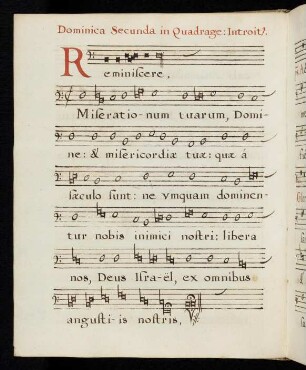 Dominica Secunda in Quadrage: Introitꝰ.
Reminiscere,
Miseratio-num tuarum, Domi-
ne: & misericordiæ tuæ: quæ à
sæculo sunt: ne vmquam dominen-
tur nobis inimici nostri: libera
nos, Deus Israël, ex omnibus
angusti-is nostris.